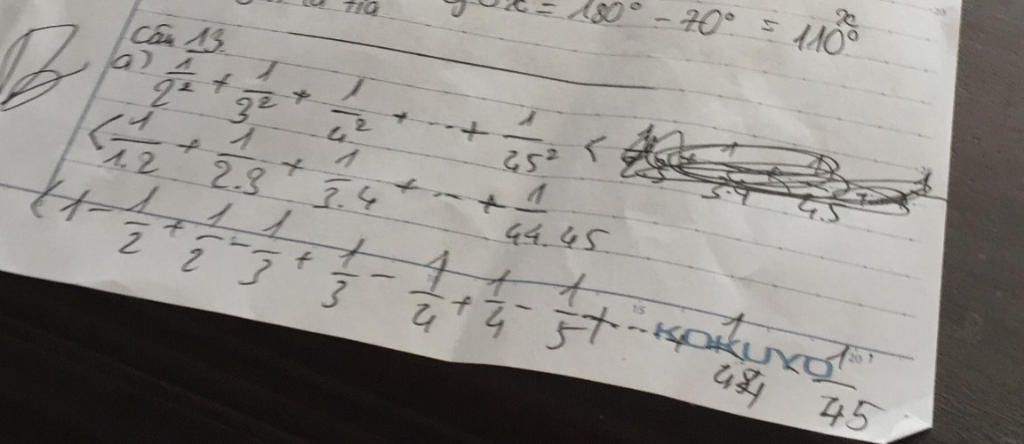 = 180° - 70° = 110°
Câu 13.
a) 1/2² + 1/3² + 1/4² + ... + 1/45² <
< 1/1.2 + 1/2.3 + 1/3.4 + ... + 1/44.45
< 1 - 1/2 + 1/2 - 1/3 + 1/3 - 1/4 + 1/4 - 1/5 + ... 1/44 - 1/45
KOKUYO